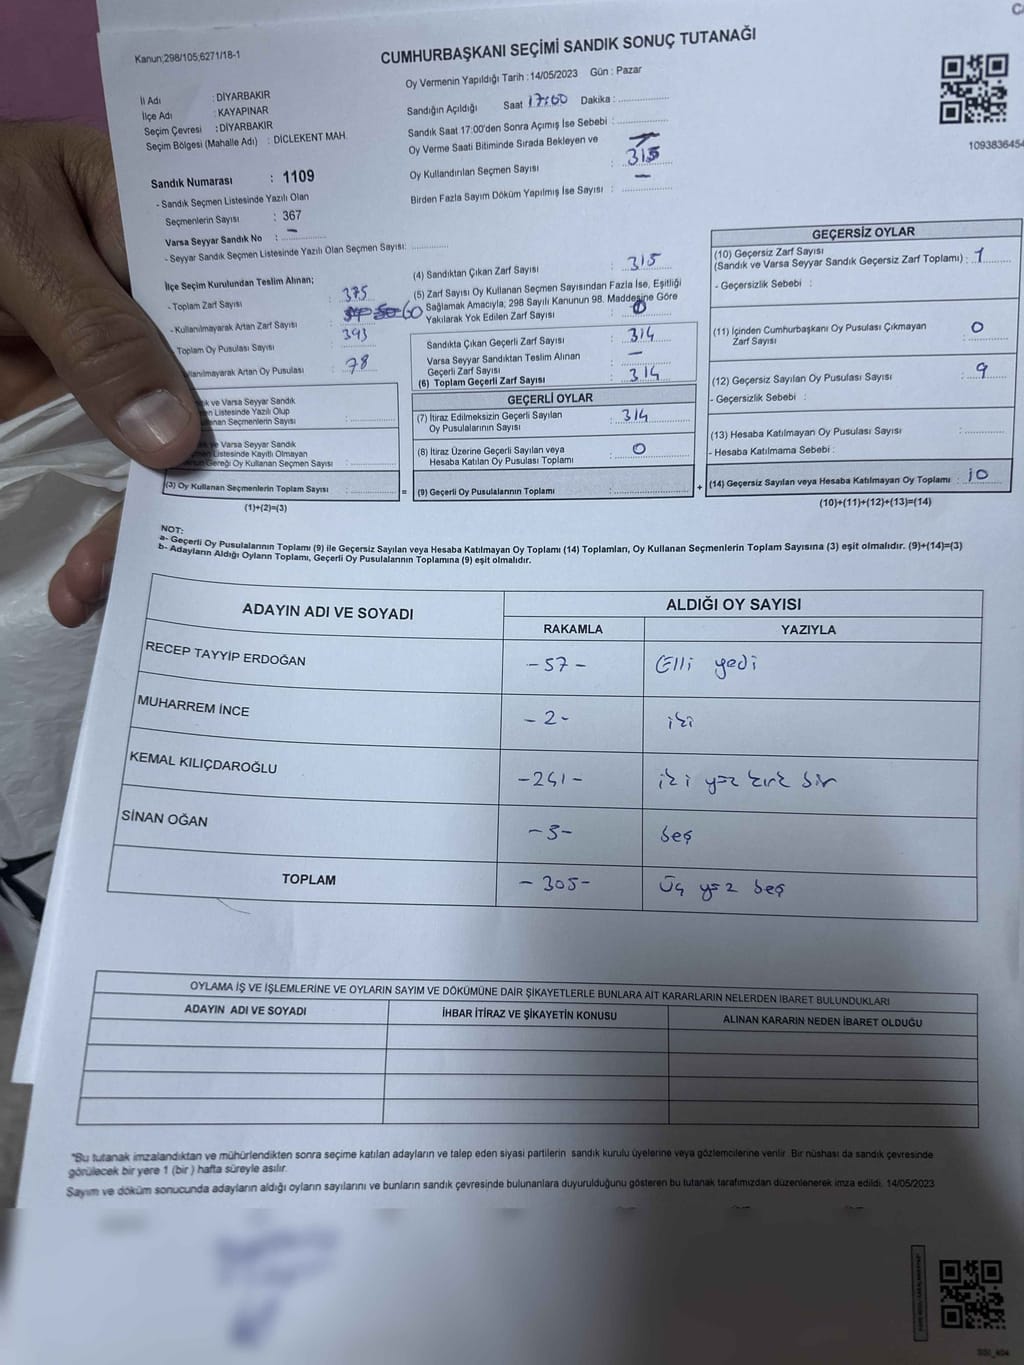 Kanun;298/105;6271/18-1
CUMHURBAŞKANI SEÇİMİ SANDIK SONUÇ TUTANAĞI
Oy Vermenin Yapıldığı Tarih : 14/05/2023 Gün : Pazar
İl Adı : DİYARBAKIR
İlçe Adı : KAYAPINAR
Seçim Çevresi : DİYARBAKIR
Seçim Bölgesi (Mahalle Adı) : DİCLEKENT MAH.
Sandık Numarası : 1109
- Sandık Seçmen Listesinde Yazılı Olan
Seçmenlerin Sayısı : 367
Varsa Seyyar Sandık No : –
- Seyyar Sandık Seçmen Listesinde Yazılı Olan Seçmen Sayısı: ..............
Sandığın Açıldığı Saat 17:00 Dakika : ....................
Sandık Saat 17:00'den Sonra Açımış İse Sebebi : ................
Oy Verme Saati Bitiminde Sırada Bekleyen ve
Oy Kullandırılan Seçmen Sayısı : 315
Birden Fazla Sayım Döküm Yapılmış İse Sayısı : –
1093836454
İlçe Seçim Kurulundan Teslim Alınan;
- Toplam Zarf Sayısı : 375
- Kullanılmayarak Artan Zarf Sayısı : 60
- Toplam Oy Pusulası Sayısı : 393
anılmayarak Artan Oy Pusulası : 78
k ve Varsa Seyyar Sandık
Listesinde Yazılı Olup
anan Seçmenlerin Sayısı :
ve Varsa Seyyar Sandık
Listesinde Kayıtlı Olmayan
Gereği Oy Kullanan Seçmen Sayısı :
(3) Oy Kullanan Seçmenlerin Toplam Sayısı :
(1)+(2)=(3)
(4) Sandıktan Çıkan Zarf Sayısı : 315
(5) Zarf Sayısı Oy Kullanan Seçmen Sayısından Fazla İse, Eşitliği
Sağlamak Amacıyla; 298 Sayılı Kanunun 98. Maddesine Göre
Yakılarak Yok Edilen Zarf Sayısı : 0
Sandıkta Çıkan Geçerli Zarf Sayısı : 314
Varsa Seyyar Sandıktan Teslim Alınan
Geçerli Zarf Sayısı : –
(6) Toplam Geçerli Zarf Sayısı : 314
GEÇERLİ OYLAR
(7) İtiraz Edilmeksizin Geçerli Sayılan
Oy Pusulalarının Sayısı : 314
(8) İtiraz Üzerine Geçerli Sayılan veya
Hesaba Katılan Oy Pusulası Toplamı : 0
= (9) Geçerli Oy Pusulalarının Toplamı :
GEÇERSİZ OYLAR
(10) Geçersiz Zarf Sayısı
(Sandık ve Varsa Seyyar Sandık Geçersiz Zarf Toplamı) : 1
- Geçersizlik Sebebi :
(11) İçinden Cumhurbaşkanı Oy Pusulası Çıkmayan
Zarf Sayısı : 0
(12) Geçersiz Sayılan Oy Pusulası Sayısı : 9
- Geçersizlik Sebebi :
(13) Hesaba Katılmayan Oy Pusulası Sayısı :
- Hesaba Katılmama Sebebi :
+ (14) Geçersiz Sayılan veya Hesaba Katılmayan Oy Toplamı : 10
(10)+(11)+(12)+(13)=(14)
NOT:
a- Geçerli Oy Pusulalarının Toplamı (9) ile Geçersiz Sayılan veya Hesaba Katılmayan Oy Toplamı (14) Toplamları, Oy Kullanan Seçmenlerin Toplam Sayısına (3) eşit olmalıdır. (9)+(14)=(3)
b- Adayların Aldığı Oyların Toplamı, Geçerli Oy Pusulalarının Toplamına (9) eşit olmalıdır.
ADAYIN ADI VE SOYADI
ALDIĞI OY SAYISI
RAKAMLA YAZIYLA
RECEP TAYYİP ERDOĞAN -57- Elli yedi
MUHARREM İNCE -2- iki
KEMAL KILIÇDAROĞLU -241- iki yüz kırk bir
SİNAN OĞAN -5- beş
TOPLAM -305- Üç yüz beş
OYLAMA İŞ VE İŞLEMLERİNE VE OYLARIN SAYIM VE DÖKÜMÜNE DAİR ŞİKAYETLERLE BUNLARA AİT KARARLARIN NELERDEN İBARET BULUNDUKLARI
ADAYIN ADI VE SOYADI İHBAR İTİRAZ VE ŞİKAYETİN KONUSU ALINAN KARARIN NEDEN İBARET OLDUĞU
*Bu tutanak imzalandıktan ve mühürlendikten sonra seçime katılan adayların ve talep eden siyasi partilerin sandık kurulu üyelerine veya gözlemcilerine verilir. Bir nüshası da sandık çevresinde
görülecek bir yere 1 (bir ) hafta süreyle asılır.
Sayım ve döküm sonucunda adayların aldığı oyların sayılarını ve bunların sandık çevresinde bulunanlara duyurulduğunu gösteren bu tutanak tarafımızdan düzenlenerek imza edildi. 14/05/2023